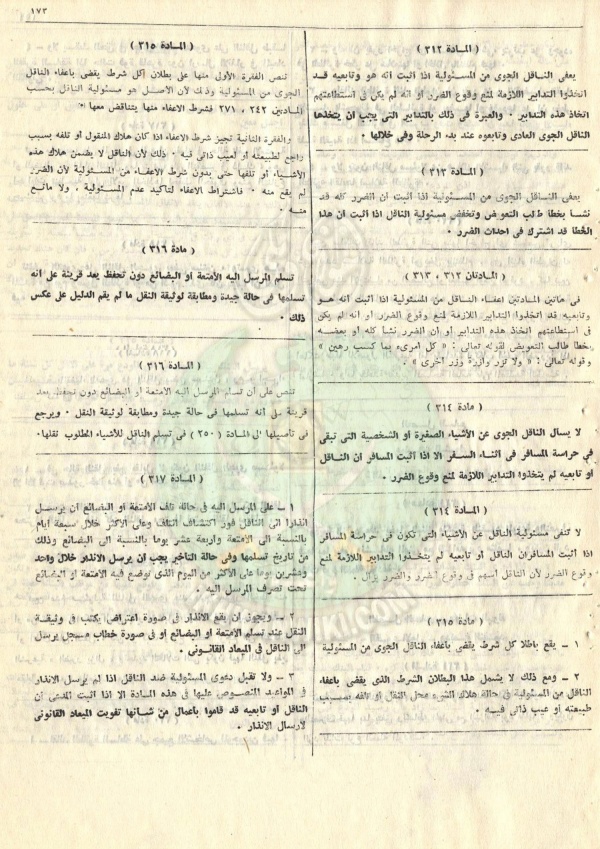 ١٧٣
( المادة ٣١٢ )
يعفى الناقل الجوى من المسئولية اذا اثبت انه هو وتابعيه قد
اتخذوا التدابير اللازمة لمنع وقوع الضرر أو انه لم يكن فى استطاعتهم
اتخاذ هذه التدابير ٠ والعبرة فى ذلك بالتدابير التى يجب ان يتخذها
الناقل الجوى العادى وتابعوه عند بدء الرحلة وفى خلالها ٠
( المادة ٣١٣ )
يعفى الناقل الجوى من المسئولية اذا اثبت ان الضرر كله قد
نشا بخطا طالب التعويض وتخفض مسئولية الناقل اذا اثبت ان هذا
الخطا قد اشترك فى احداث الضرر ٠
( المادتان ٣١٢ ، ٣١٣ )
فى هاتين المادتين اعفاء الناقل من المسئولية اذا اثبت انه هو
وتابعيه قد اتخذوا التدابير اللازمة لمنع وقوع الضرر أو انه لم يكن
فى استطاعتهم اتخاذ هذه التدابير او ان الضرر نشا كله أو بعضه
بخطا طالب التعويض لقوله تعالى : « كل امرىء بما كسب رهين »
وقوله تعالى : « ولا تزر وازرة وزر أخرى » ٠
( مادة ٣١٤ )
لا يسال الناقل الجوى عن الأشياء الصغيرة او الشخصية التى تبقى
فى حراسة المسافر فى اثناء السفر الا اذا اثبت المسافر ان الناقل
او تابعيه لم يتخذوا التدابير اللازمة لمنع وقوع الضرر ٠
( المادة ٣١٤ )
لا تنفى مسئولية الناقل عن الأشياء التى تكون فى حراسة المسافر
اذا اثبت المسافر ان الناقل أو تابعيه لم يتخذوا التدابير اللازمة لمنع
وقوع الضرر لأن الناقل أسهم فى وقوع الضرر والضرر يزال ٠
( المادة ٣١٥ )
١ ــ يقع باطلا كل شرط يقضى باعفاء الناقل الجوى من المسئولية
٢ ــ ومع ذلك لا يشمل هذا البطلان الشرط الذى يقضى باعفاء
الناقل من المسئولية فى حالة هلاك الشىء محل النقل أو تلفه بسبب
طبيعته او عيب ذاتى فيه ٠
( المادة ٣١٥ )
تنص الفقرة الأولى منها على بطلان كل شرط يقضى باعفاء الناقل
الجوى من المسئولية وذلك لأن الأصل هو مسئولية الناقل بحسب
المادتين ٢٤٢ ، ٢٧١ فشرط الاعفاء منها يتناقض معها ٠
والفقرة الثانية تجيز شرط الاعفاء اذا كان هلاك المنقول أو تلفه بسبب
راجع لطبيعته أو لعيب ذاتى فيه ٠ ذلك لأن الناقل لا يضمن هلاك هذه
الأشياء أو تلفها حتى بدون شرط الاعفاء من المسئولية لأن الضرر
لم يقع منه ٠ فاشتراط الاعفاء تاكيد عدم المسئولية ، ولا مانع
منه ٠
( مادة ٣١٦ )
تسلم المرسل اليه الأمتعة أو البضائع دون تحفظ يعد قرينة على انه
تسلمها فى حالة جيدة ومطابقة لوثيقة النقل ما لم يقم الدليل على عكس
ذلك ٠
( المادة ٣١٦ )
تنص على أن تسلم المرسل اليه الأمتعة أو البضائع دون تحفظ يعد
قرينة على انه تسلمها فى حالة جيدة ومطابقة لوثيقة النقل ٠ ويرجع
فى تأصيلها الى المادة ( ٢٥٠ ) فى تسلم الناقل للأشياء المطلوب نقلها٠
( المادة ٣١٧ )
١ ــ على المرسل اليه فى حالة تلف الأمتعة أو البضائع أن يرسل
انذارا الى الناقل فور اكتشاف التلف وعلى الأكثر خلال سبعة أيام
بالنسبة الى الأمتعة وأربعة عشر يوما بالنسبة الى البضائع وذلك
من تاريخ تسلمها وفى حالة التأخير يجب ان يرسل الانذار خلال واحد
وعشرين يوما على الأكثر من اليوم الذى توضع فيه الأمتعة أو البضائع
تحت تصرف المرسل اليه ٠
٢ ــ ويجوز أن يقع الانذار فى صورة اعتراض يكتب فى وثيقة
النقل عند تسلم الأمتعة او البضائع او فى صورة خطاب مسجل يرسل
الى الناقل فى الميعاد القانونى ٠
٣ ــ ولا تقبل دعوى المسئولية ضد الناقل اذا لم يرسل الانذار
فى المواعيد المنصوص عليها فى هذه المادة الا اذا اثبت المدعى أن
الناقل أو تابعيه قد قاموا باعمال من شأنها تفويت الميعاد القانونى
لارسال الانذار ٠